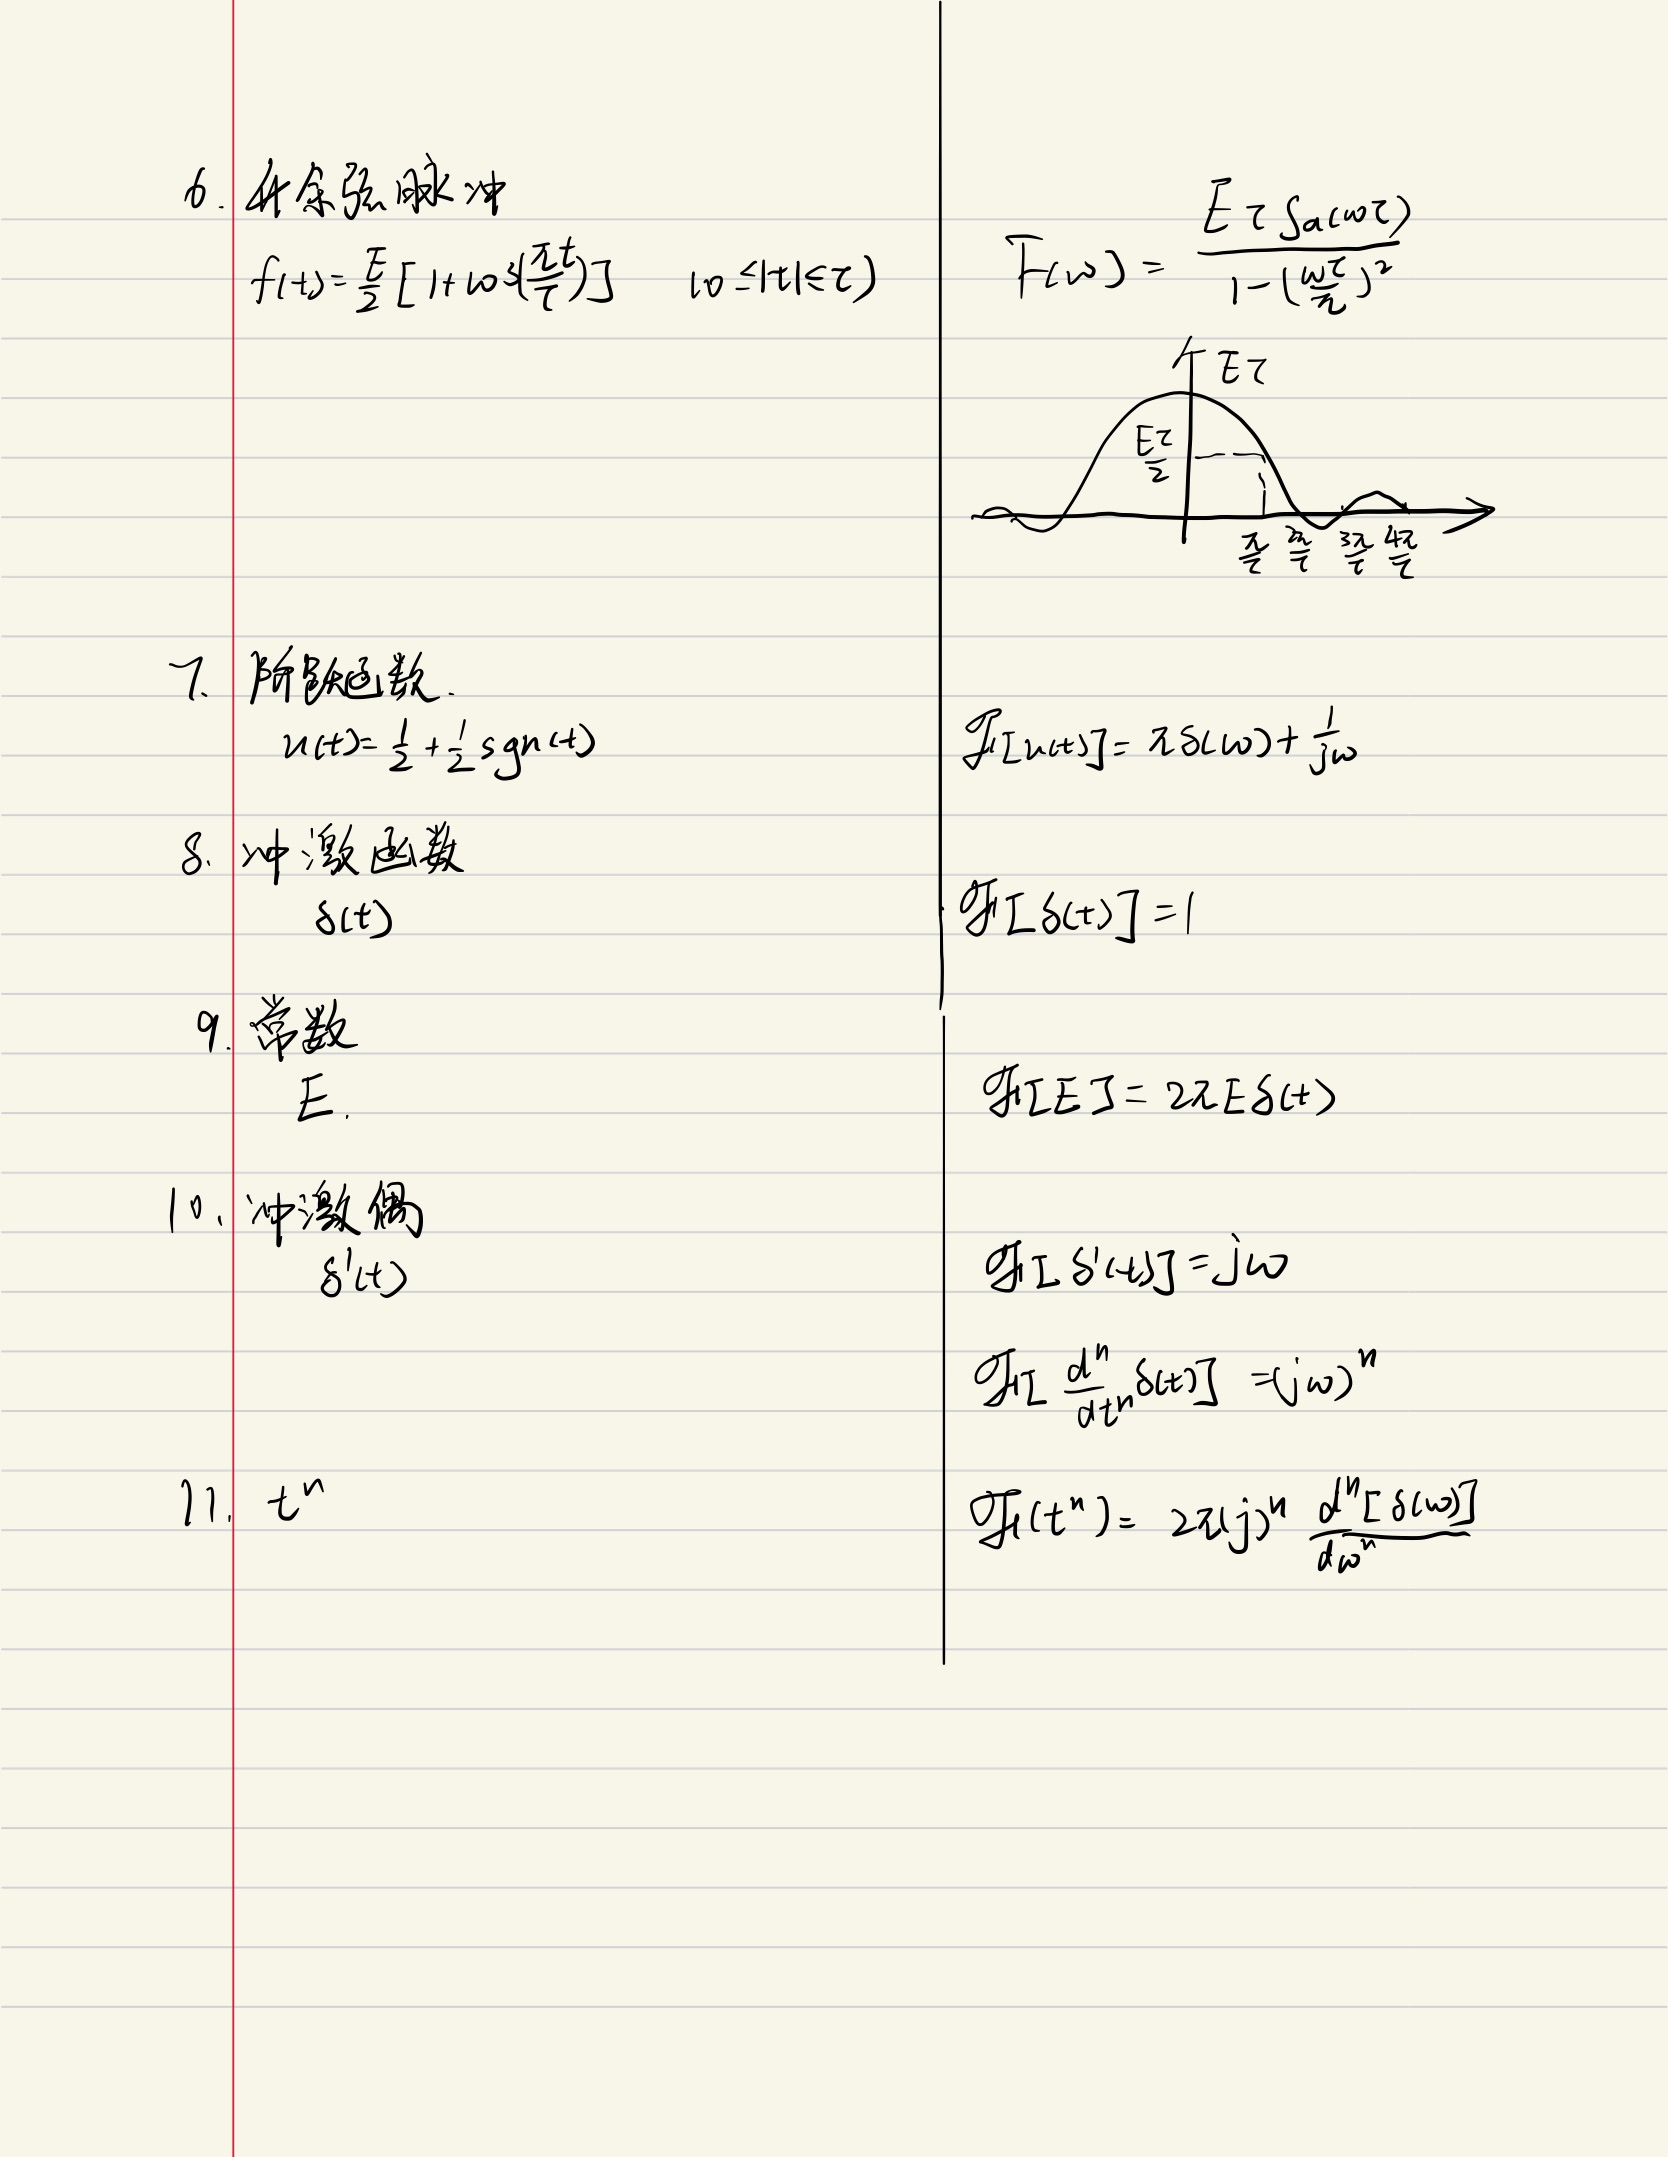 6. 升余弦脉冲
f(t)=E/2[1+cos(πt/τ)] (0≤|t|≤τ)
F(ω)=EτSa(ωτ)/(1-(ωτ/π)²)
Eτ
Eτ/2
π/τ 2π/τ 3π/τ 4π/τ
7. 阶跃函数.
u(t)=1/2+1/2sgn(t)
ℱ[u(t)]=πδ(ω)+1/jω
8. 冲激函数
δ(t)
ℱ[δ(t)]=1
9. 常数
E.
ℱ[E]=2πEδ(t)
10. 冲激偶
δ'(t)
ℱ[δ'(t)]=jω
ℱ[dⁿ/dtⁿ δ(t)]=(jω)ⁿ
11. tⁿ
ℱ(tⁿ)=2π(j)ⁿ dⁿ[δ(ω)]/dωⁿ